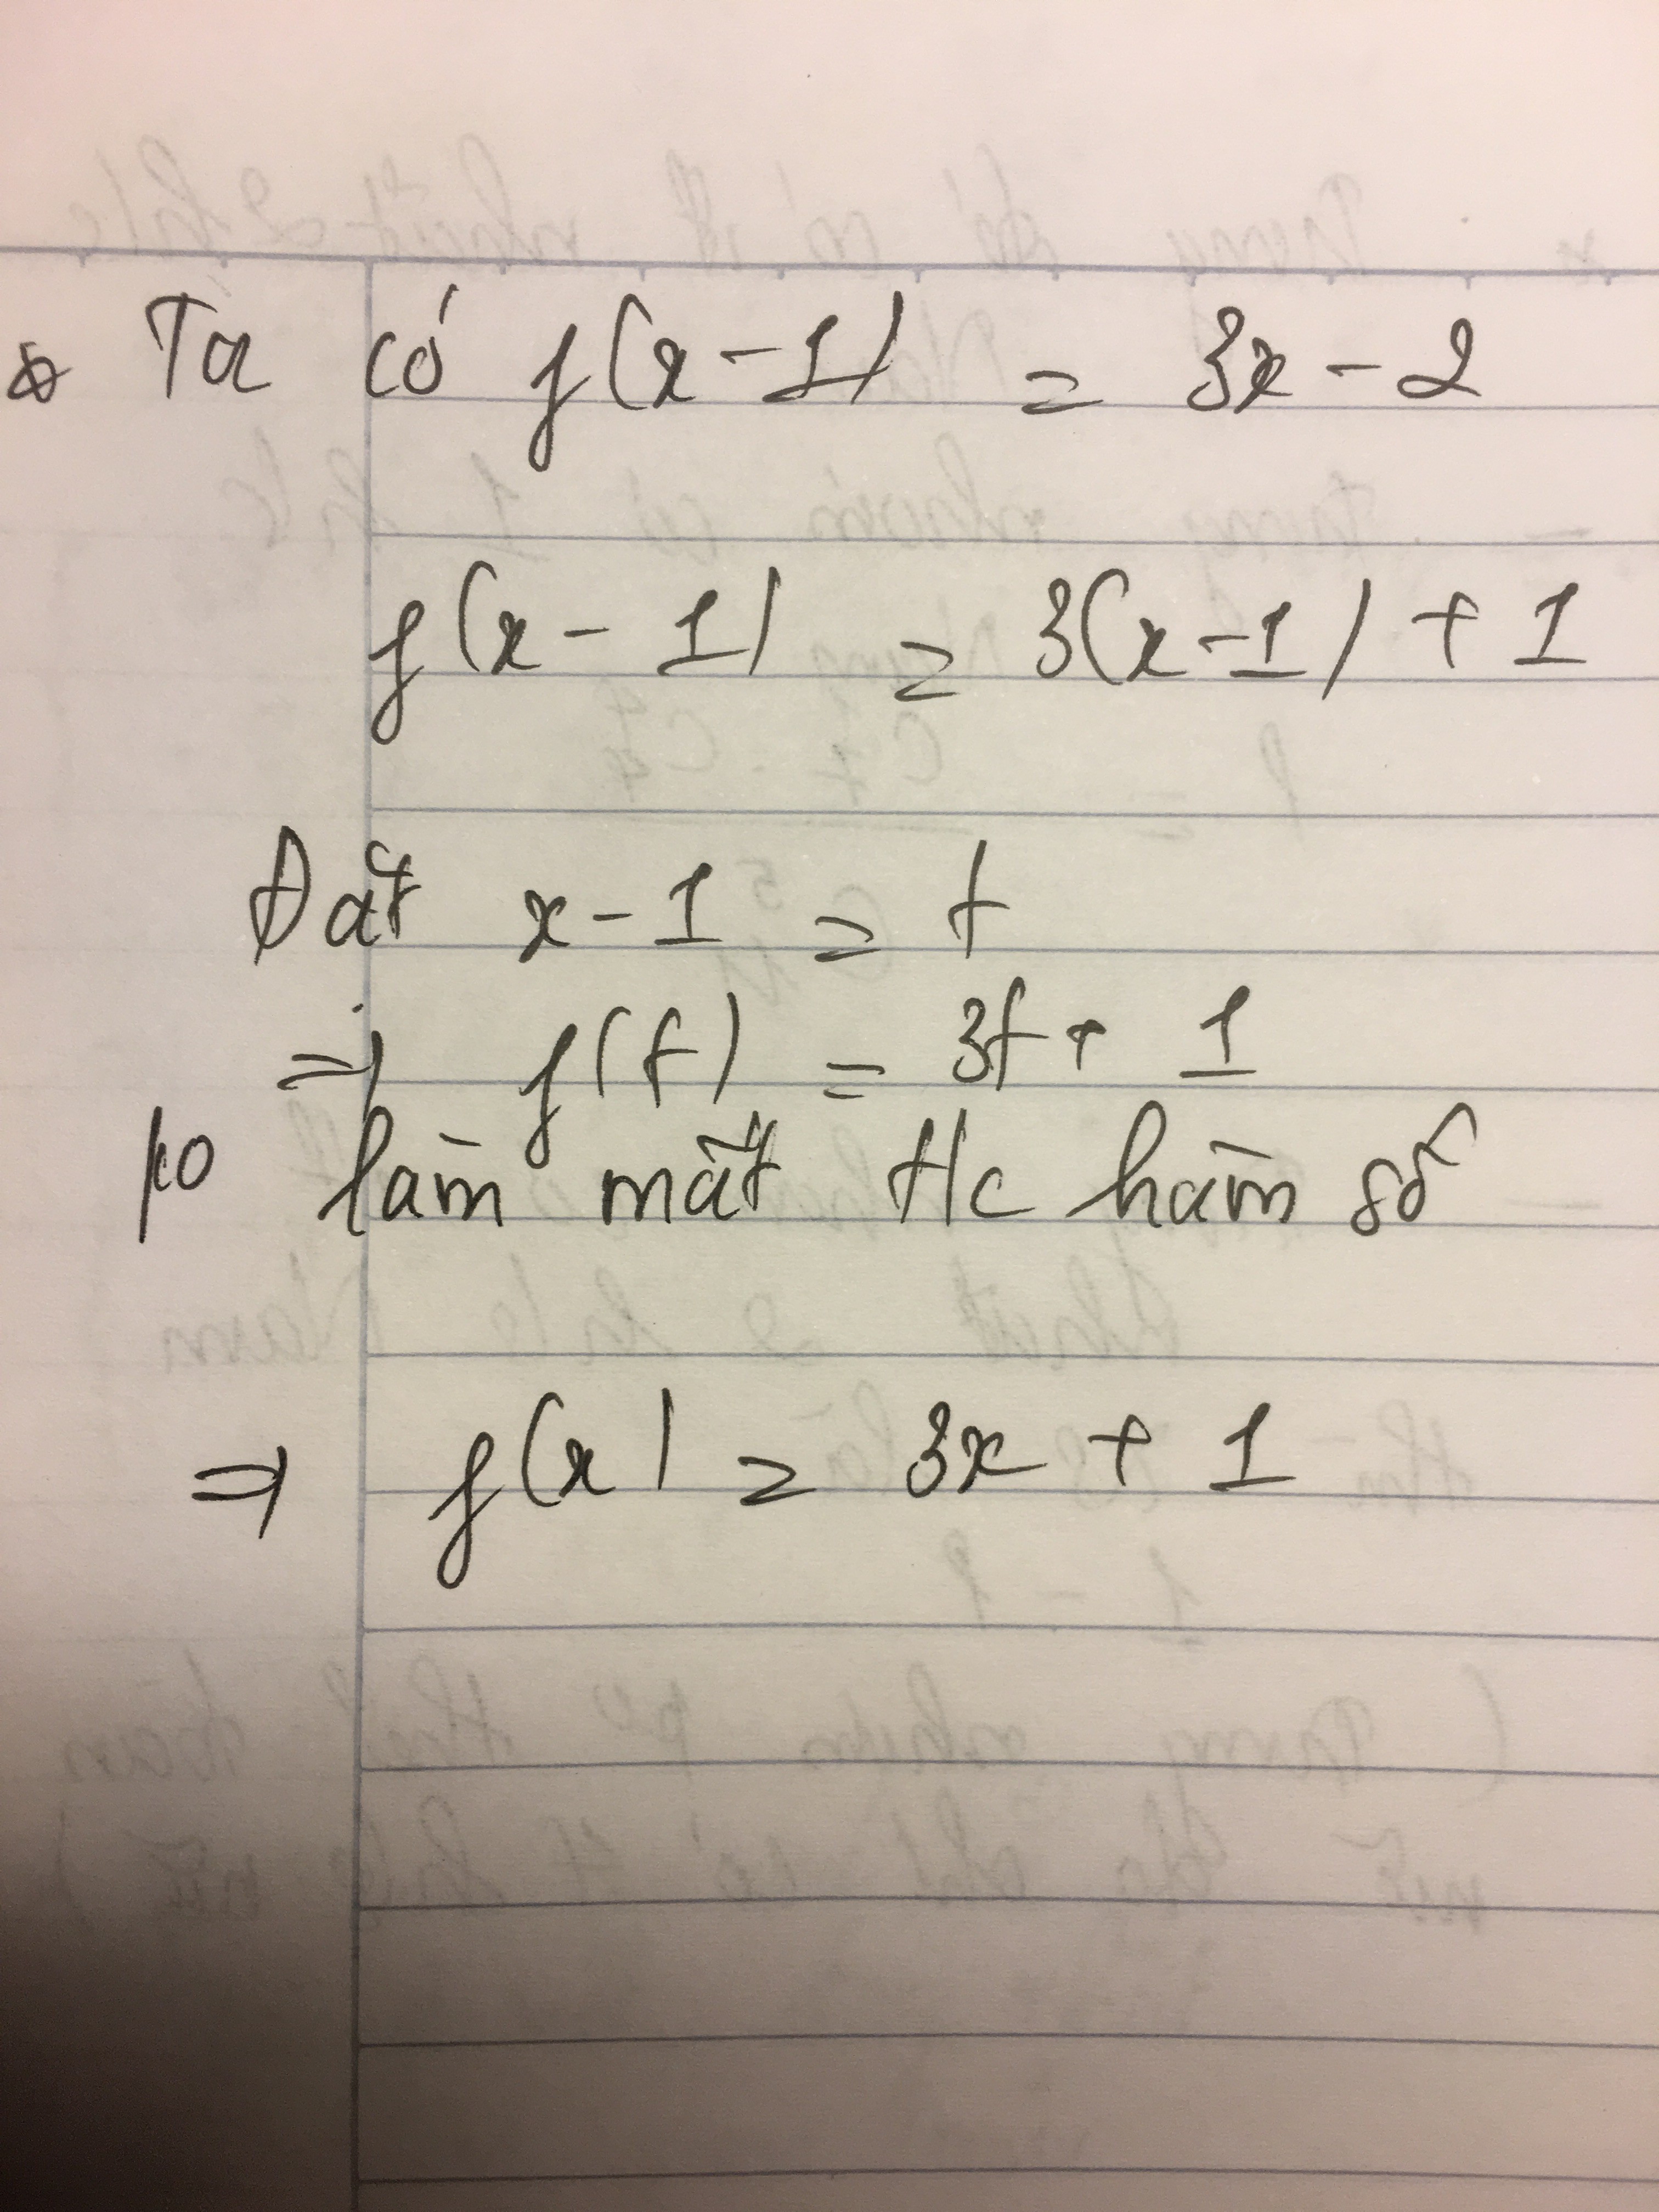 Ta có f(x-1) = 3x - 2
f(x - 1) = 3(x-1) + 1
Đặt x-1 = t
=> f(t) = 3t + 1
ko làm mất t/c hàm số
=> f(x) = 3x + 1